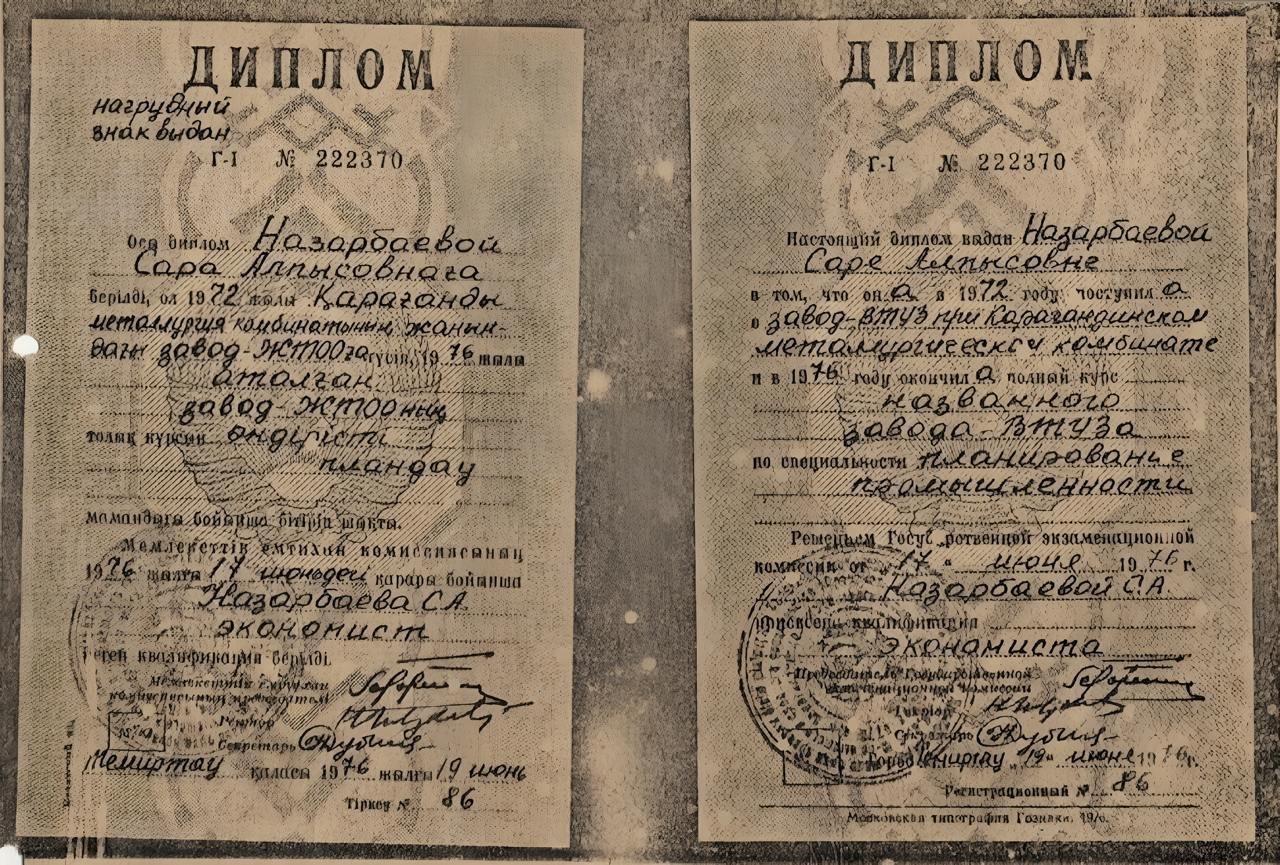 ДИПЛОМ
нагрудный
знак выдан
Г-I № 222370
Осы диплом Назарбаевой
Сара Алпысовнаға
берілді, ол 1972 жылы Қарағанды
металлургия комбинатының жанын-
дағы завод-ЖТОО-ға түсіп, 1976 жылы
аталған
завод-ЖТОО-ның
толық курсын өндірісті
пландау
мамандығы бойынша бітіріп шықты.
Мемлекеттік емтихан комиссиясының
1976 жылғы 17 июньдегі қарары бойынша
Назарбаева С.А.
экономист
деген квалификация берілді.
Мемлекеттік емтихан
комиссиясының председателі
Ректор
Секретарь
Теміртау қаласы 1976 жылғы 19 июнь
Тіркеу № 86
ДИПЛОМ
Г-I № 222370
Настоящий диплом выдан Назарбаевой
Саре Алпысовне
в том, что она в 1972 году поступила
в завод-ВТУЗ при Карагандинском
металлургическом комбинате
и в 1976 году окончила полный курс
названного
завода-ВТУЗа
по специальности планирование
промышленности
Решением Государственной экзаменационной
комиссии от "17" июня 1976 г.
Назарбаевой С.А.
присвоена квалификация
экономиста
Председатель Государственной
экзаменационной комиссии
Ректор
Секретарь
Город Темиртау "19" июня 1976 г.
Регистрационный № 86
Московская типография Гознака. 1976.